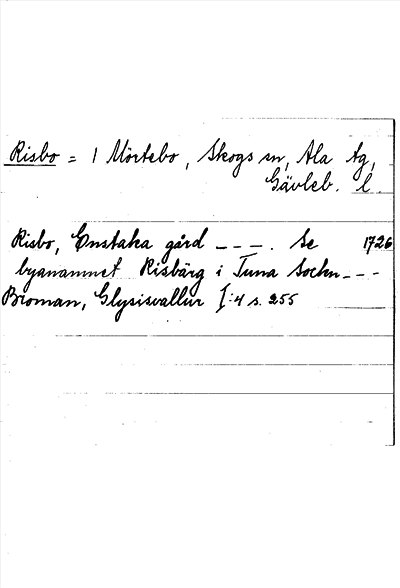 Risbo = 1 Mörtebo, Skogs sn, Ala tg,
Gävleb. l.
Risbo, Enstaka gård - - -. Se 1726
byanamnet Risbärg i Tuna Sochn - - -
Broman, Glysisvallur I:4 s. 255